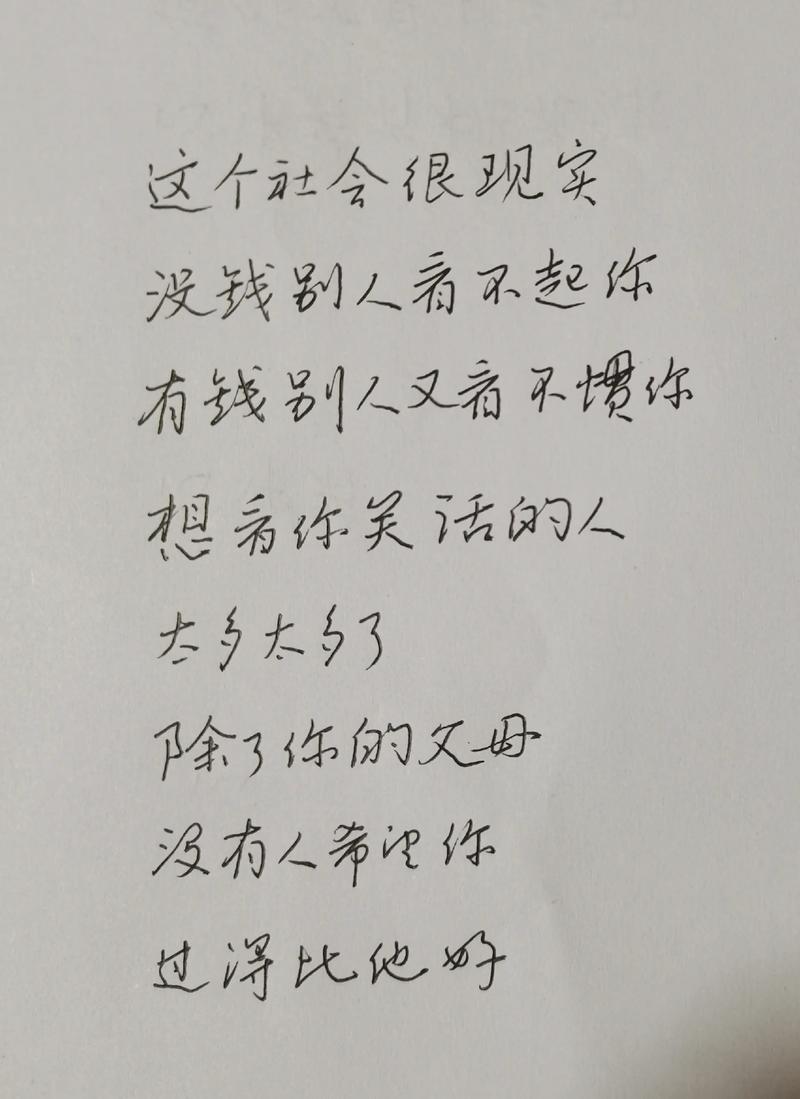 这个社会很现实
没钱别人看不起你
有钱别人又看不惯你
想看你笑话的人
太多太多了
除了你的父母
没有人希望你
过得比他好